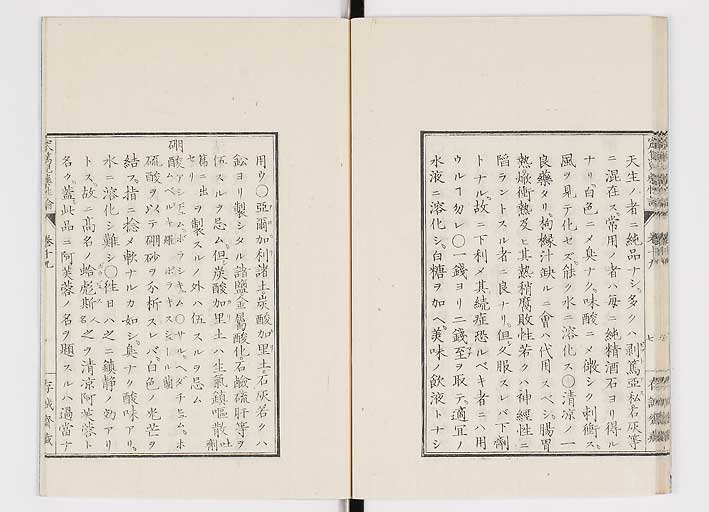 天生ノ者ニ純品ナシ。多クハ剥篤亞私若灰等
ニ混在ス。常用ノ者ハ毎ニ純精酒石ヨリ得ル
ナリ。白色ニメ臭ナク。味酸ニメ微シク刺衝ス
風ヲ見テ化セズ。能ク水ニ溶化ス〇清凉ノ一
良藥タリ。枸櫞汁缺ルニ會ハ代用スベシ。腸胃
熱燉衝熱及ヒ其熱稍腐敗性若クハ神經性ニ
陷ラントスル者ニ良ナリ。但久服スレバ下劑
トナル。故ニ下利メ其続症恐ルベキ者ニハ用
ウルヿ勿レ〇一錢ヨリ二錢至ヲ取テ。適宜ノ
水液ニ溶化シ。白糖ヲ加ヘ。美味ノ飲液トナシ
用ウ〇亞爾加利諸土炭酸加里土石灰若クハ
鉛ヨリ製シタル諸鹽金屬酸化石鹼硫肝等ヲ
伍スルヲ忌ム。但炭酸加里土ハ生氣鎮嘔散吐劑
篇ニ出セリヲ製スルノ外ハ伍スルヲ忌ム
硼酸
硫酸ヲ以テ硼砂ヲ分析スレバ。白色ノ光芒ヲ
結フ。指ニ捻メ軟ナルカ如シ。臭ナク酸味アリ。
水ニ溶化シ難シ〇往日ハ之ニ鎮静ノ効アリ
トス故ニ髙名ノ蛤彪斯人名之ヲ清凉阿芙蓉ト
名ク。蓋此品ニ阿芙蓉ノ名ヲ題スルハ過當ナ
卷十九